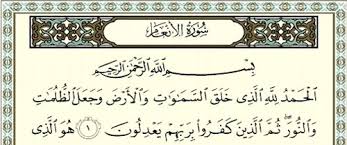 سُورَةُ الأَنْعَامِ
بِسْمِ اللَّهِ الرَّحْمَٰنِ الرَّحِيمِ
الْحَمْدُ لِلَّهِ الَّذِي خَلَقَ السَّمَٰوَٰتِ وَالْأَرْضَ وَجَعَلَ الظُّلُمَٰتِ
وَالنُّورَ ۖ ثُمَّ الَّذِينَ كَفَرُوا بِرَبِّهِمْ يَعْدِلُونَ ١ هُوَ الَّذِي